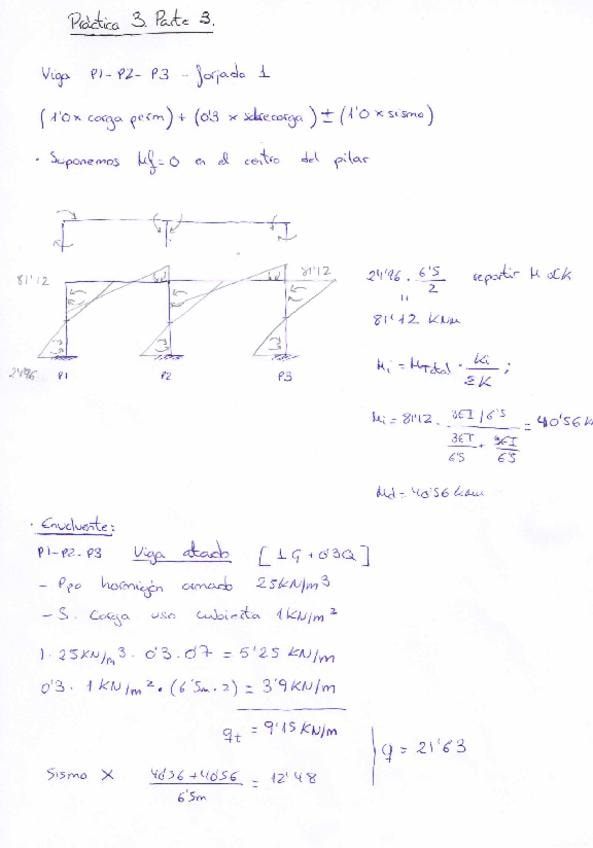 Práctica 3. Parte 3.
Viga P1-P2-P3 - forjado 1
(1'0 x carga perm) + (0'3 x sobrecarga) ± (1'0 x sismo)
· Suponemos Mf=0 en el centro del pilar
81'12
81'12
24'96
P1 P2 P3
24'96 · 6'5/2 repartir M αK
"
81'12 KNm
Mi = MTotal · Ki/ΣK ;
Mi = 81'12 · (3EI/6'5)/(3EI/6'5 + 3EI/6'5) = 40'56 K
Md = 40'56 KNm
· Envolvente:
P1-P2-P3 Viga atado [1G + 0'3Q]
- Ppo hormigón armado 25KN/m³
- S. Carga uso cubierta 1KN/m²
1·25KN/m³ · 0'3 · 0'7 = 5'25 KN/m
0'3 · 1KN/m² · (6'5m · 2) = 3'9KN/m
qt = 9'15KN/m
q = 21'63
Sismo X (40'56 + 40'56)/6'5m = 12'48